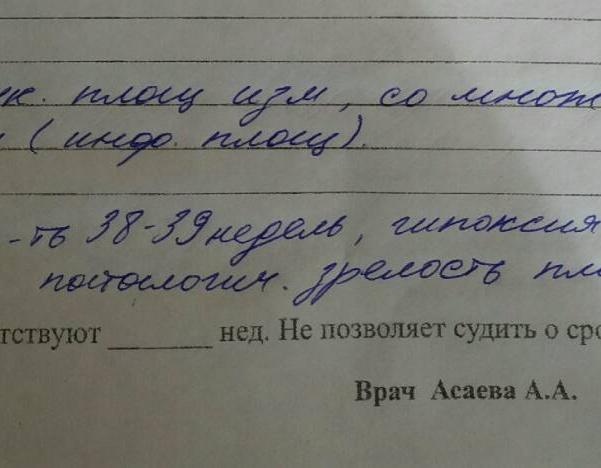 ж. площ изм, со множ
(инфо. площ).
-ть 38-39 недель, гипоксия
патологич. зрелость пл
тствуют _______ нед. Не позволяет судить о сро
Врач Асаева А.А.